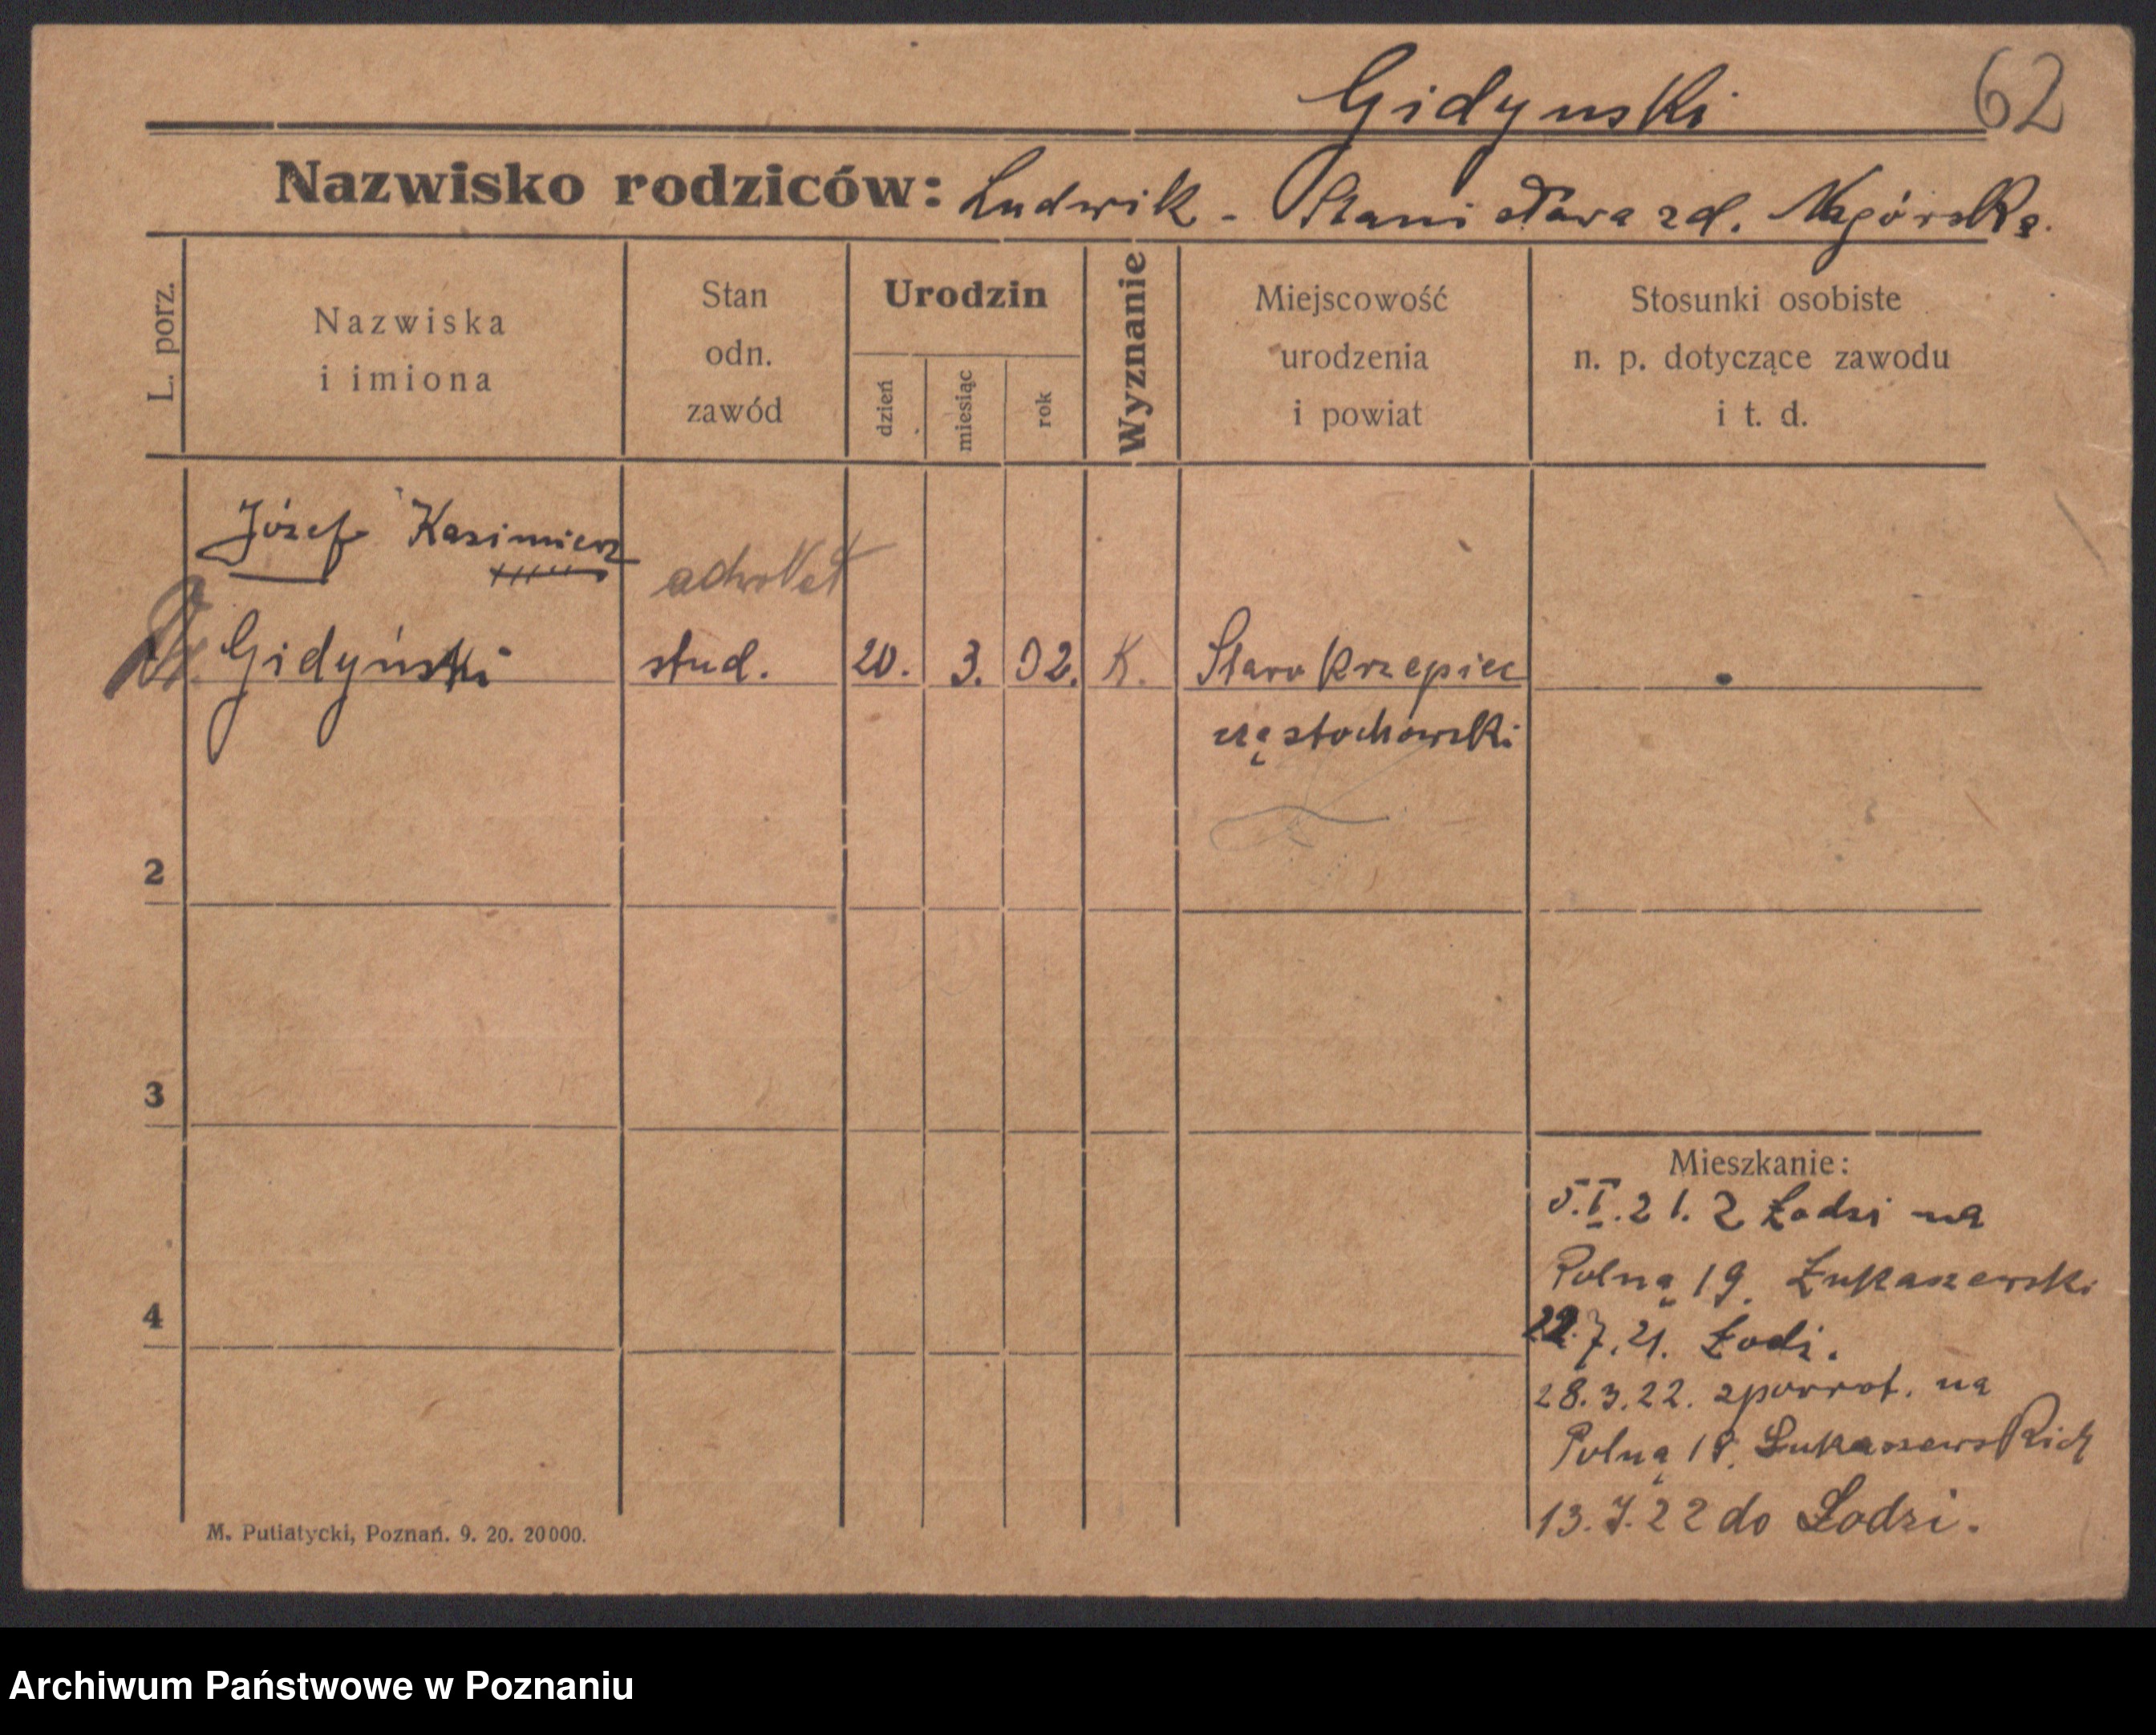 Gidynski
62
Nazwisko rodziców: Ludwik - Stanisława zd. Nagórska.
L. porz.
Nazwiska
i imiona
Stan
odn.
zawód
Urodzin
dzień
miesiąc
rok
Wyznanie
Miejscowość
urodzenia
i powiat
Stosunki osobiste
n. p. dotyczące zawodu
i t. d.
Józef Kazimierz
adwokat
Gidyński stud. 20. 3. 02. K. Staro Krzepice
częstochowski
2
3
4
Mieszkanie:
5.I.21. Z Łodzi na
Polną 19. Łukaszewski
22.7.21. Łodz.
28.3.22. zpowrot. na
Polną 18. Łukaszewskich
13.7.22 do Łodzi.
M. Putiatycki, Poznań. 9. 20. 20000.
Archiwum Państwowe w Poznaniu